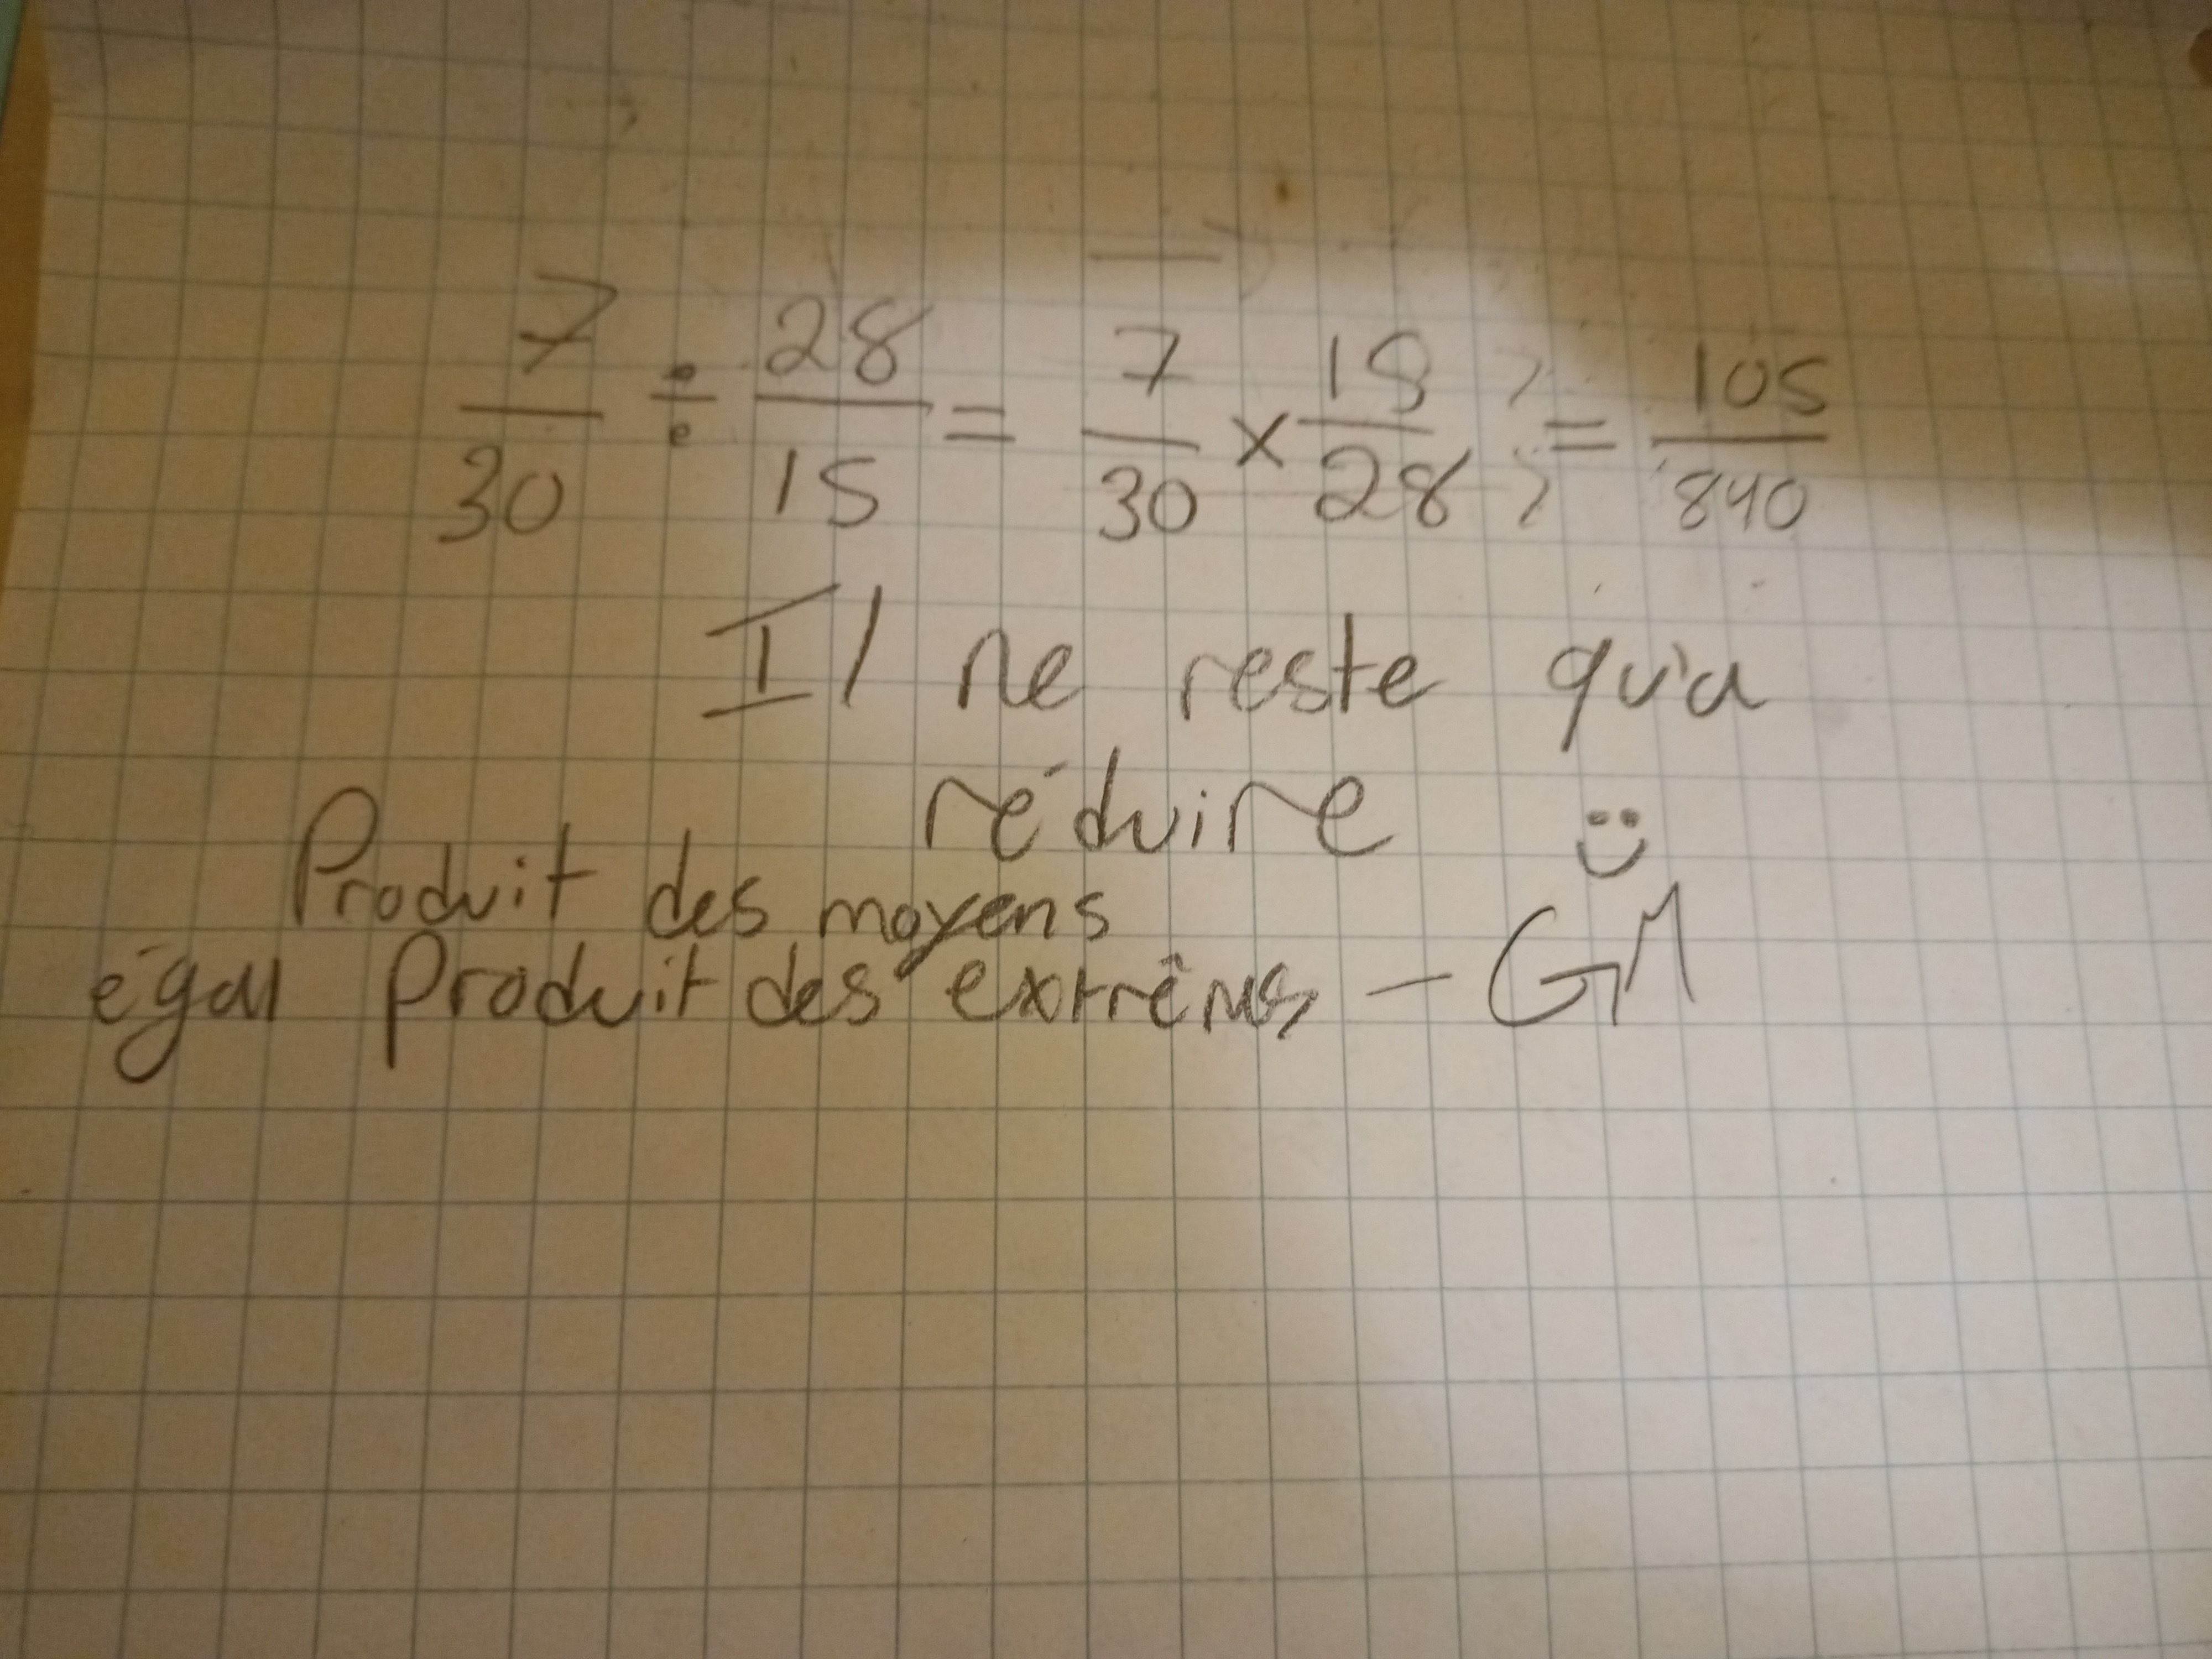 7/30 ÷ 28/15 = 7/30 × 15/28 = 105/840
Il ne reste qu'a
réduire :)
Produit des moyens
égal Produit des extrêmes - GM